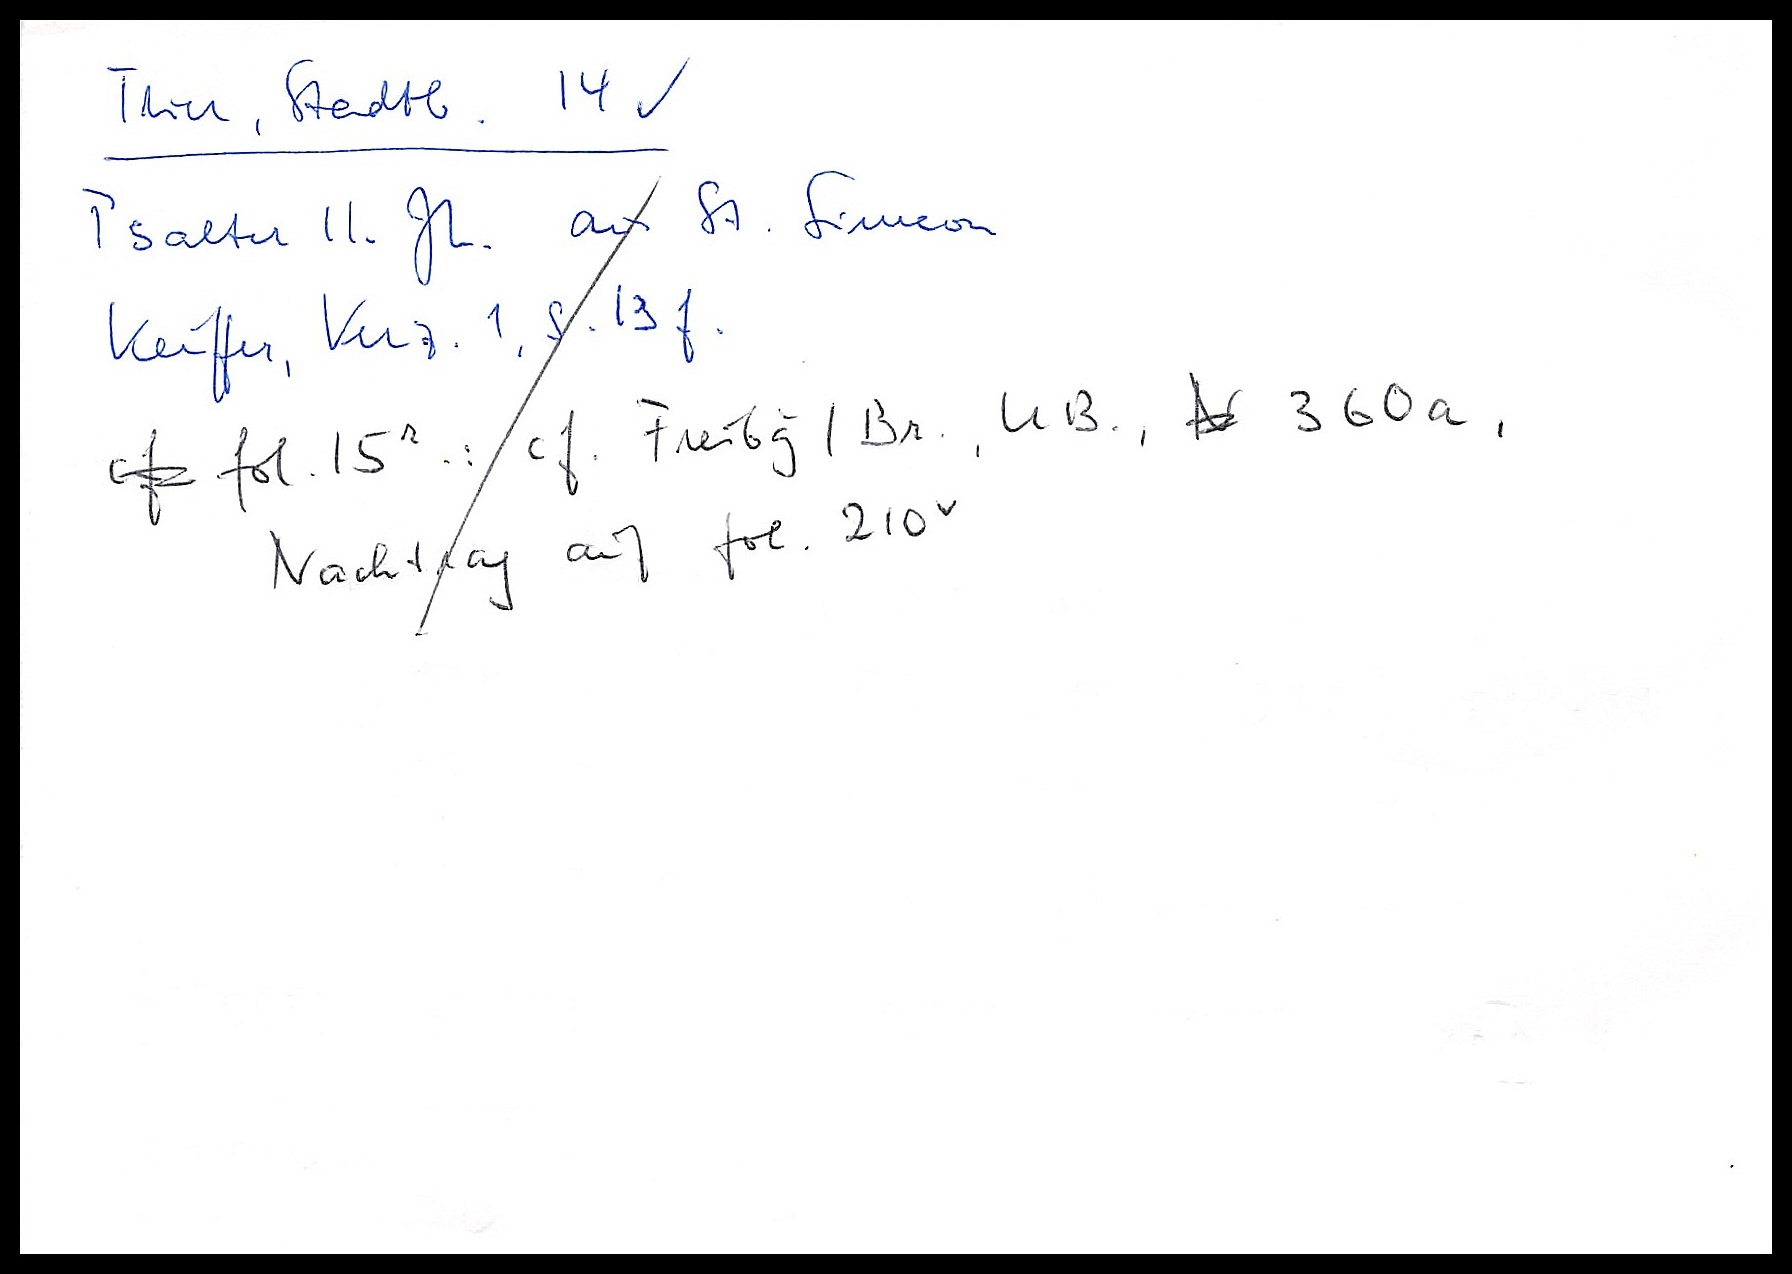 Trier, Stadtb. 14 ✓
Psalter 11. Jh. aus St. Simeon
Keuffer, Verz. 1, S. 13 f.
cf fol. 15r.: cf. Freibg/Br., UB., 360a,
Nachtrag auf fol. 210v